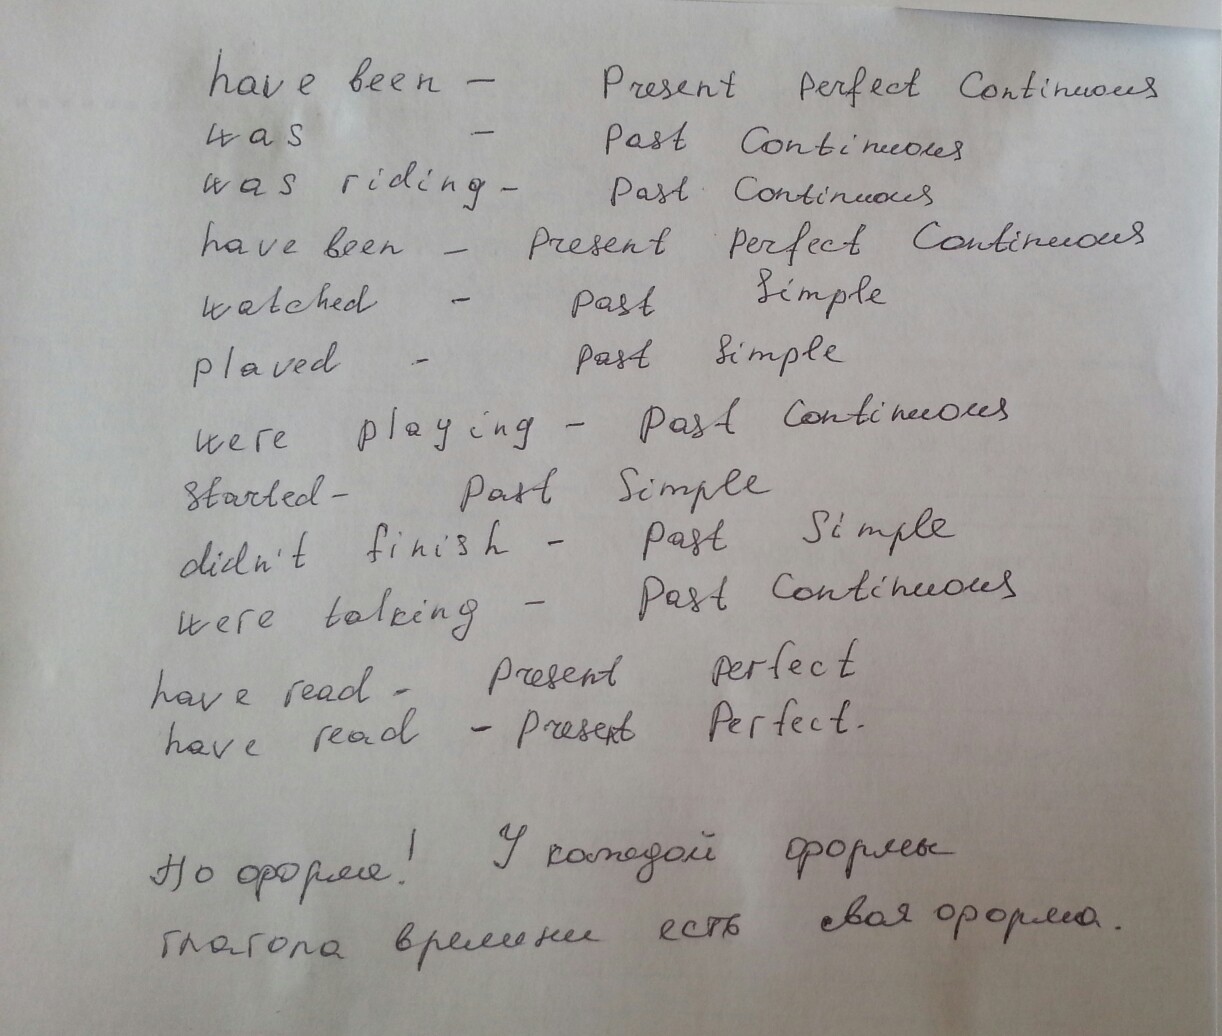 have been - Present Perfect Continuous
was - Past Continuous
was riding - Past Continuous
have been - Present Perfect Continuous
watched - Past Simple
plaved - Past Simple
were playing - Past Continuous
started - Past Simple
didn't finish - Past Simple
were talking - Past Continuous
have read - Present Perfect
have read - Present Perfect.
Но форме! У каждой формы
глагола времени есть своя форма.